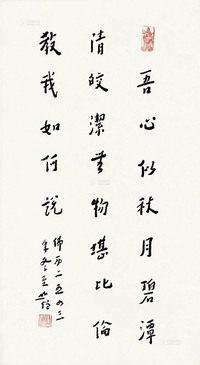 吾心似秋月碧潭
清皎潔無物堪比倫
教我如何說
佛历二五四三